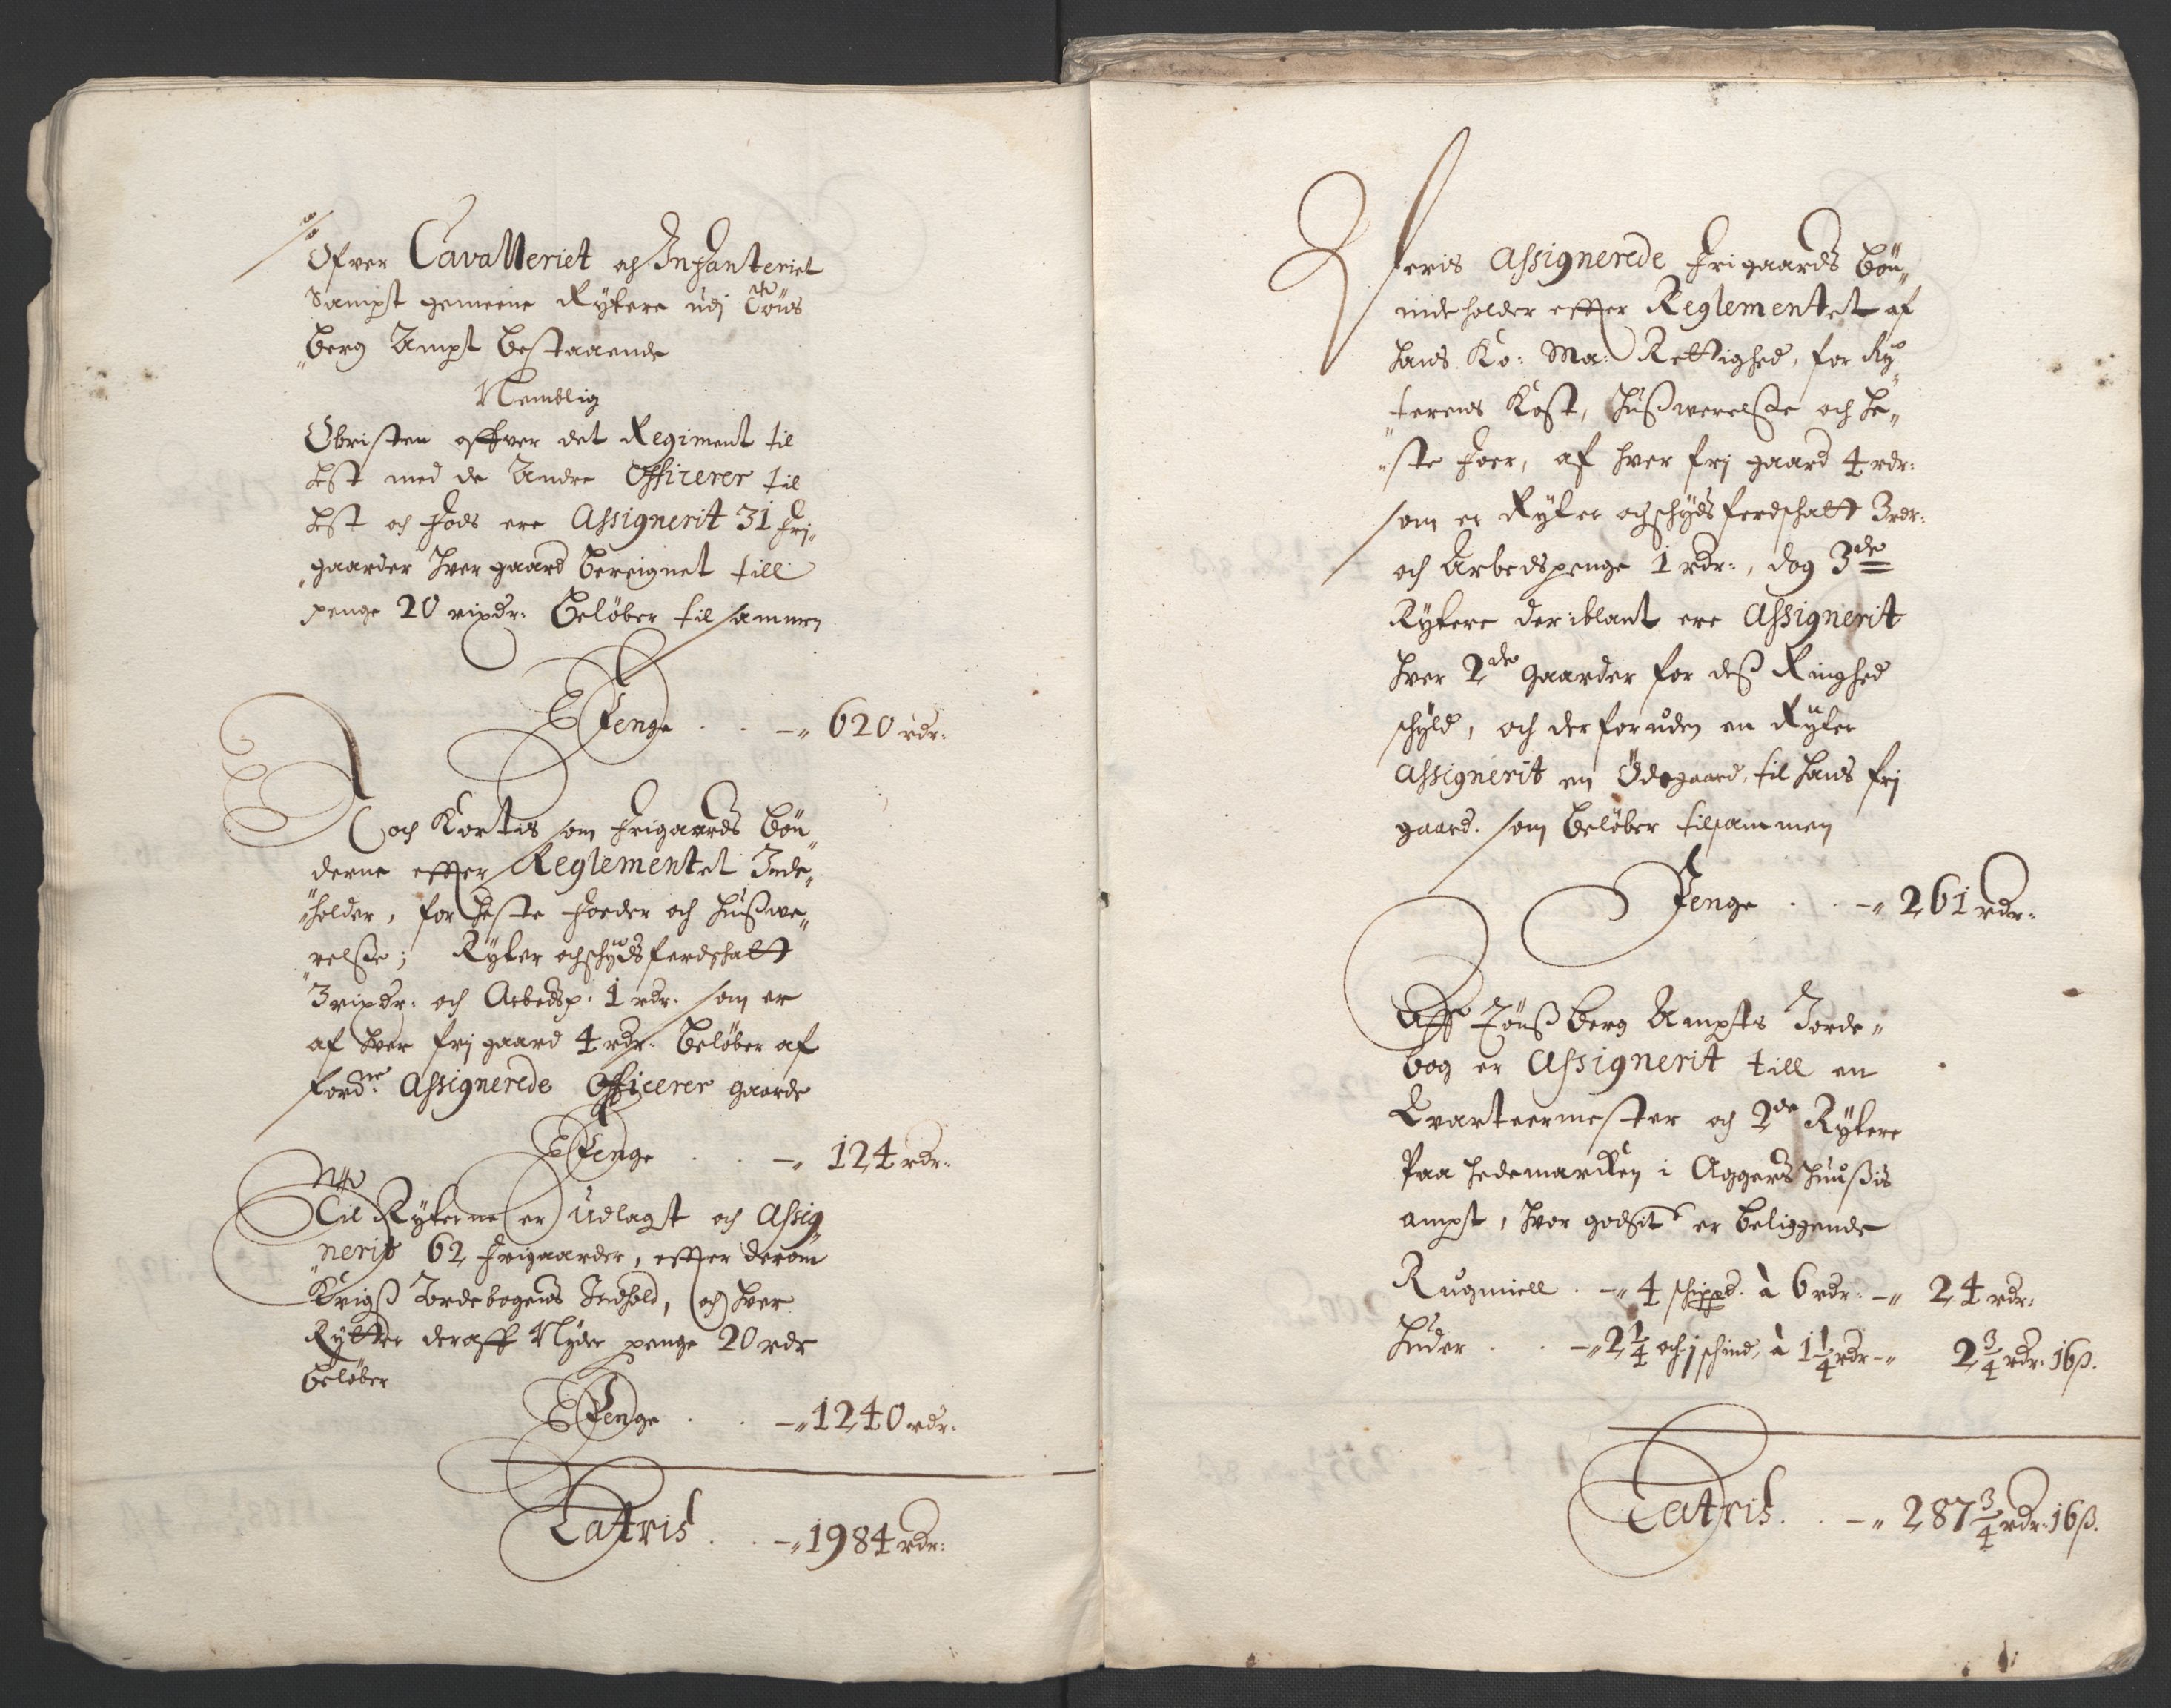 Ofver Cavalleriet och Infanteriet
Sampt gemeene Ryttere udj Töns
berg Ampt bestaaende
Nemblig
Obristen offver det Regiment til
Hest med de Andre Officerer til
Hest och Fods ere Assignerit 31 frj
gaarder hver gaard bereignet till
penge 20 rixdr: beløber til sammen
Penge . . -" 620 rdr:
och Kortis som frigaards bøn
derne effter Reglementet Inde
holder, for heste foeder och hussve
relsse; Rytter och schydsferdschatt
3 rixdr: och Arbedsp: 1 rdr. som er
af hver frj gaard 4 rdr: beløber af
ford:ne Assignerede Officerer gaarde
Penge . . -" 124 rdr:
Til Rytterne er Udlagt och Assig
nerit 62 frigaarder, effter derom
Krigss Jordebogens Indhold, och hver
Rytter deraff Nyder penge 20 rdr
beløber
Penge . . -" 1240 rdr:
Latris . . -" 1984 rdr:
assignerede frigaards bøn
inde holder effter Reglementet af
hans Ko: Ma: Rettighed, for Ry
terens Kost, hussverelsse och he
ste foer, af hver frj gaard 4 rdr:
som er Rytter och schydsferdschatt 3 rdr:
och Arbedspenge 1 rdr:, dog 3de
Ryttere der iblant ere Assignerit
hver 2de gaarder for dess Ringhed
schyld, och der foruden en Rytter
assignerit en Ödegaard, til hans frj
gaard. som beløber tilsammen
Penge . . -" 261 rdr:
Aff Tönssberg Ampts Jorde
bog er Assignerit till en
Qvarteermester och 2de Ryttere
Paa Hedemarcken i Aggershuussis
ampt, hvor godsit er beliggende
Rugmiell . -" 4 schippd. à 6 rdr: -" 24 rdr:
Huder . . -" 2 1/4 och 1 schind, à 1 1/4 rdr -" 2 3/4 rdr: 16 ß.
Latris . . -" 287 3/4 rdr: 16 ß.